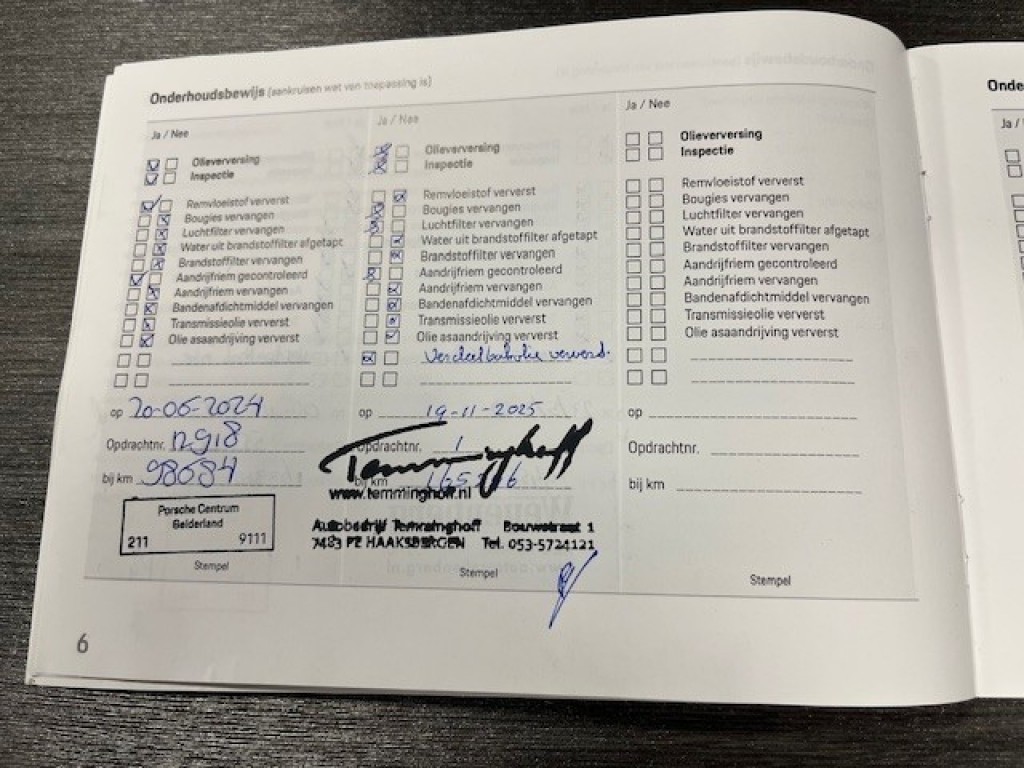 Onderhoudsbewijs (aankruisen wat van toepassing is)
Ja / Nee
Olieverversing
Inspectie
Remvloeistof ververst
Bougies vervangen
Luchtfilter vervangen
Water uit brandstoffilter afgetapt
Brandstoffilter vervangen
Aandrijfriem gecontroleerd
Aandrijfriem vervangen
Bandenafdichtmiddel vervangen
Transmissieolie ververst
Olie asaandrijving ververst
op 20-06-2024
Opdrachtnr. 12918
bij km 98684
Porsche Centrum
Gelderland
211 9111
Stempel
Ja / Nee
Olieverversing
Inspectie
Remvloeistof ververst
Bougies vervangen
Luchtfilter vervangen
Water uit brandstoffilter afgetapt
Brandstoffilter vervangen
Aandrijfriem gecontroleerd
Aandrijfriem vervangen
Bandenafdichtmiddel vervangen
Transmissieolie ververst
Olie asaandrijving ververst
op 19-11-2025
Opdrachtnr.
Temminghoff
bij km
www.temminghoff.nl
Autobedrijf Temminghoff Bouwstraat 1
7483 PE HAAKSBERGEN Tel. 053-5724121
Stempel
Ja / Nee
Olieverversing
Inspectie
Remvloeistof ververst
Bougies vervangen
Luchtfilter vervangen
Water uit brandstoffilter afgetapt
Brandstoffilter vervangen
Aandrijfriem gecontroleerd
Aandrijfriem vervangen
Bandenafdichtmiddel vervangen
Transmissieolie ververst
Olie asaandrijving ververst
op
Opdrachtnr.
bij km
Stempel
6
Onde
Ja /